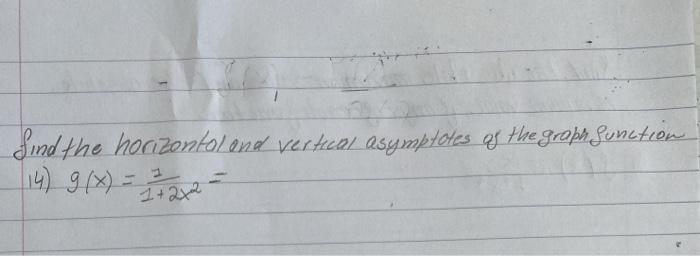 find the horizontal and vertical asymptotes of the graph function
14) g(x) = 1/1+2x² =